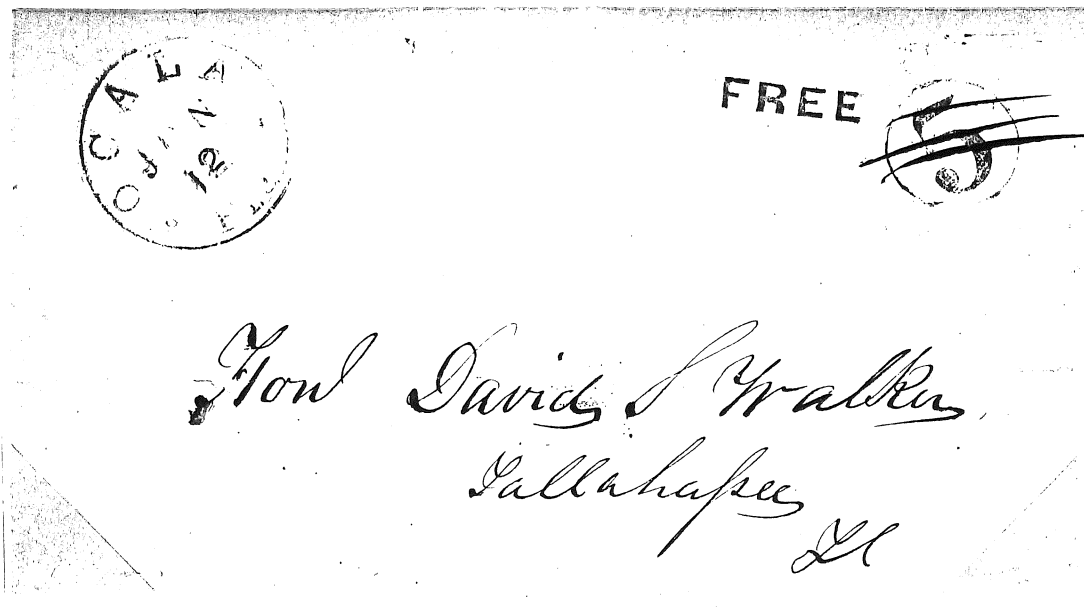 OCALA
JAN
12
FLA
FREE
5
Honl David S Walker
Tallahassee
Fl